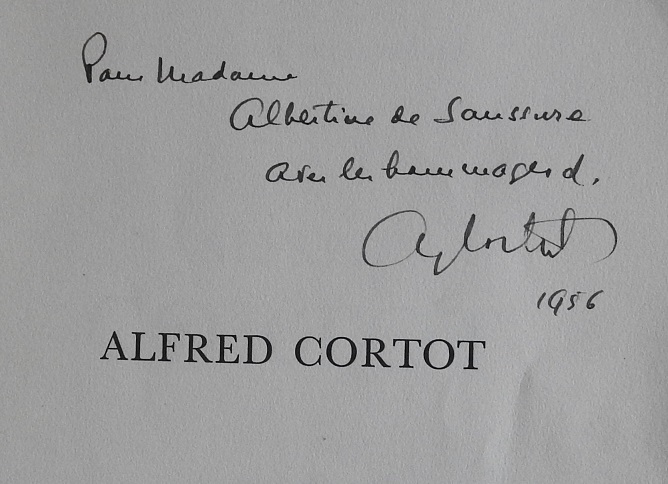 Pour Madame
Albertine de Saussure
avec les hommages d.
A Cortot
1956
ALFRED CORTOT